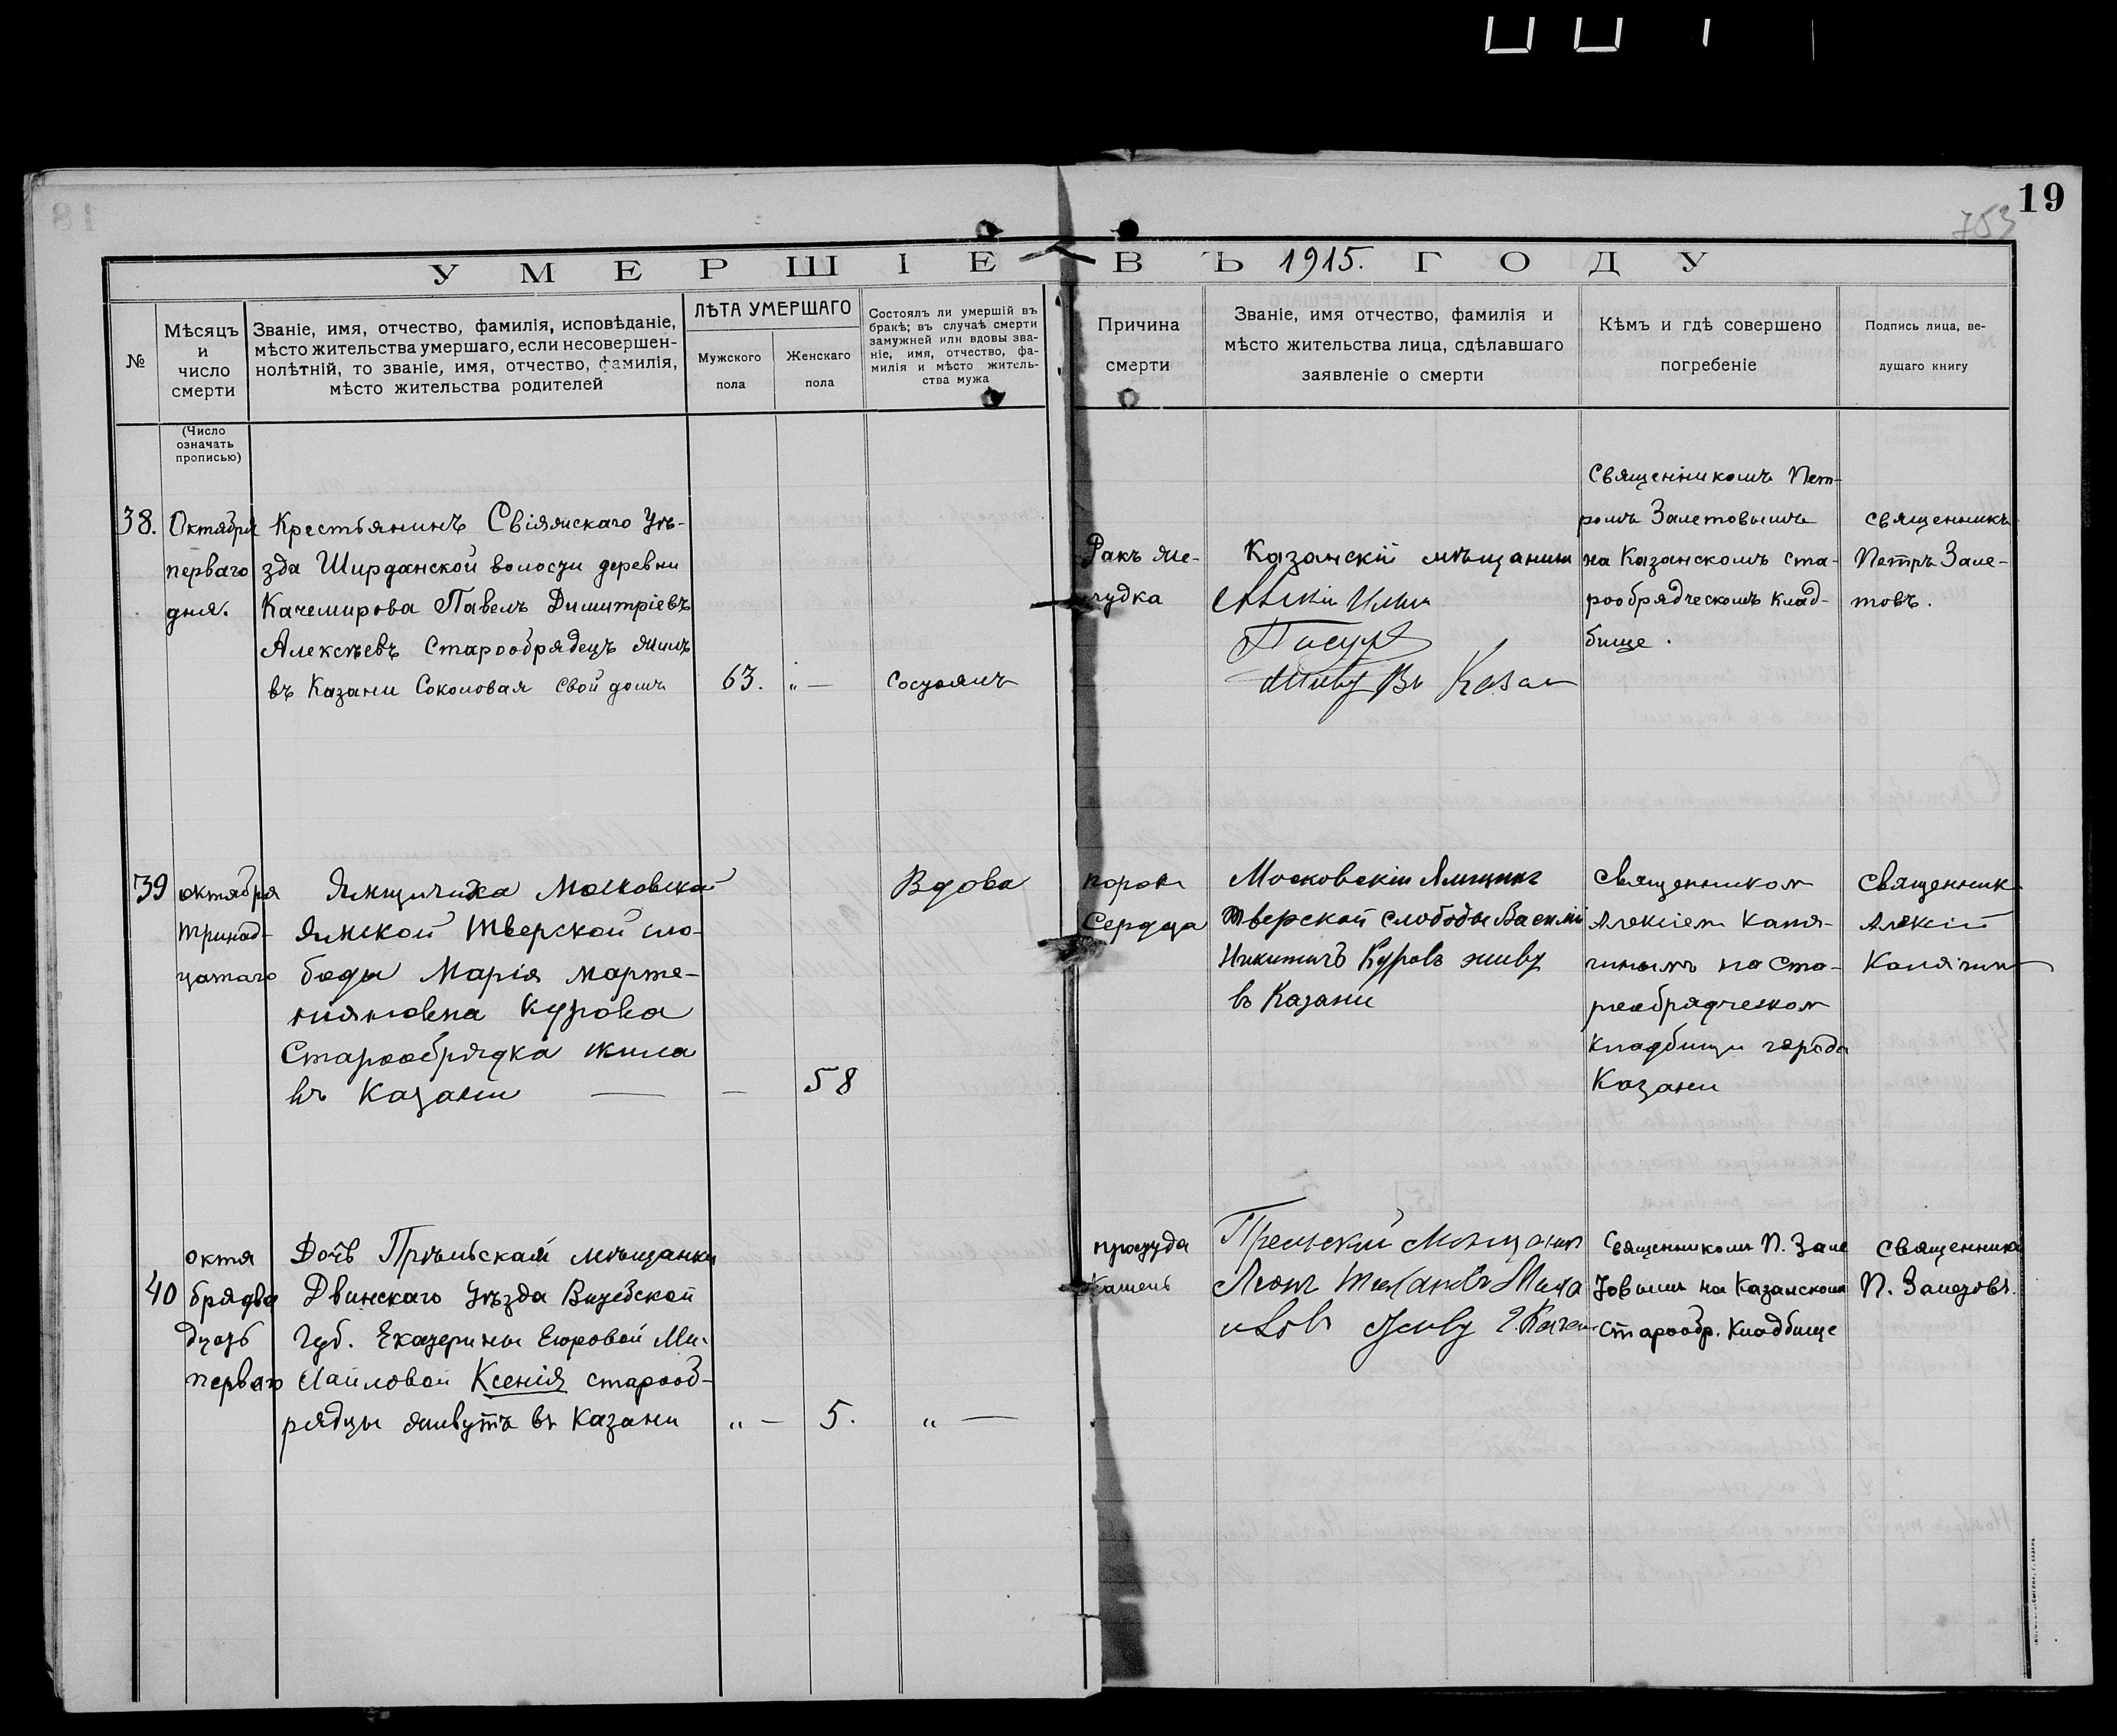 19
753
УМЕРШІЕ ВЪ 1915. ГОДУ
№
Мѣсяцъ
и
число
смерти
(Число
означать
прописью)
Званіе, имя, отчество, фамилія, исповѣданіе,
мѣсто жительства умершаго, если несовершен-
нолѣтній, то званіе, имя, отчество, фамилія,
мѣсто жительства родителей
ЛѢТА УМЕРШАГО
Мужского
пола
Женскаго
пола
Состоялъ ли умершій въ
бракѣ; въ случаѣ смерти
замужней или вдовы зва-
ніе, имя, отчество, фа-
милія и мѣсто житель-
ства мужа
Причина
смерти
Званіе, имя отчество, фамилія и
мѣсто жительства лица, сдѣлавшаго
заявленіе о смерти
Кѣмъ и гдѣ совершено
погребеніе
Подпись лица, ве-
дущаго книгу
38.
Октября
перваго
дня.
Крестьянинъ Свіяжскаго Уѣ-
зда Ширданской волости деревни
Качемирова Павелъ Димитріевъ
Алексѣевъ Старообрядецъ жилъ
въ Казани Соколовая свой домъ
63.
„ —
Состоялъ
Ракъ же-
лудка
Казанскій мѣщанинъ
Живу Въ Казан
Священникомъ Пет-
ромъ Залетовымъ
на Казанскомъ ста-
рообрядческомъ клад-
бище.
священникъ
Петръ Зале-
товъ.
39
октября
тринад-
цатаго
Ямщичиха Московской
Ямской Тверской сло-
боды Марія Марте-
ніяновна Курова
Старообрядка жила
въ Казани —
—
58
Вдова
порокъ
Сердца
Московскій Ямщикъ
Тверской слободы Василій
Никитичъ Куровъ живу
въ Казани
Священником
Алексіем Каля-
гинымъ на Ста-
рообрядческом
Кладбищи города
Казани
Священник
Алексій
Калягин
40
октя
брядва
дцать
перваго
Дочь Прѣльской мѣщанки
Двинскаго Уѣзда Витебской
губ. Екатерины Егоровой Ми-
хайловой Ксенія старооб-
рядцы живутъ въ Казани
„ —
5.
„ —
простуда
Кашель
Прельский Мещанин
живу г. Казан
Священникомъ П. Зале
товымъ на Казанскомъ
старообр. Кладбище
Священникъ
П. Залетовъ.